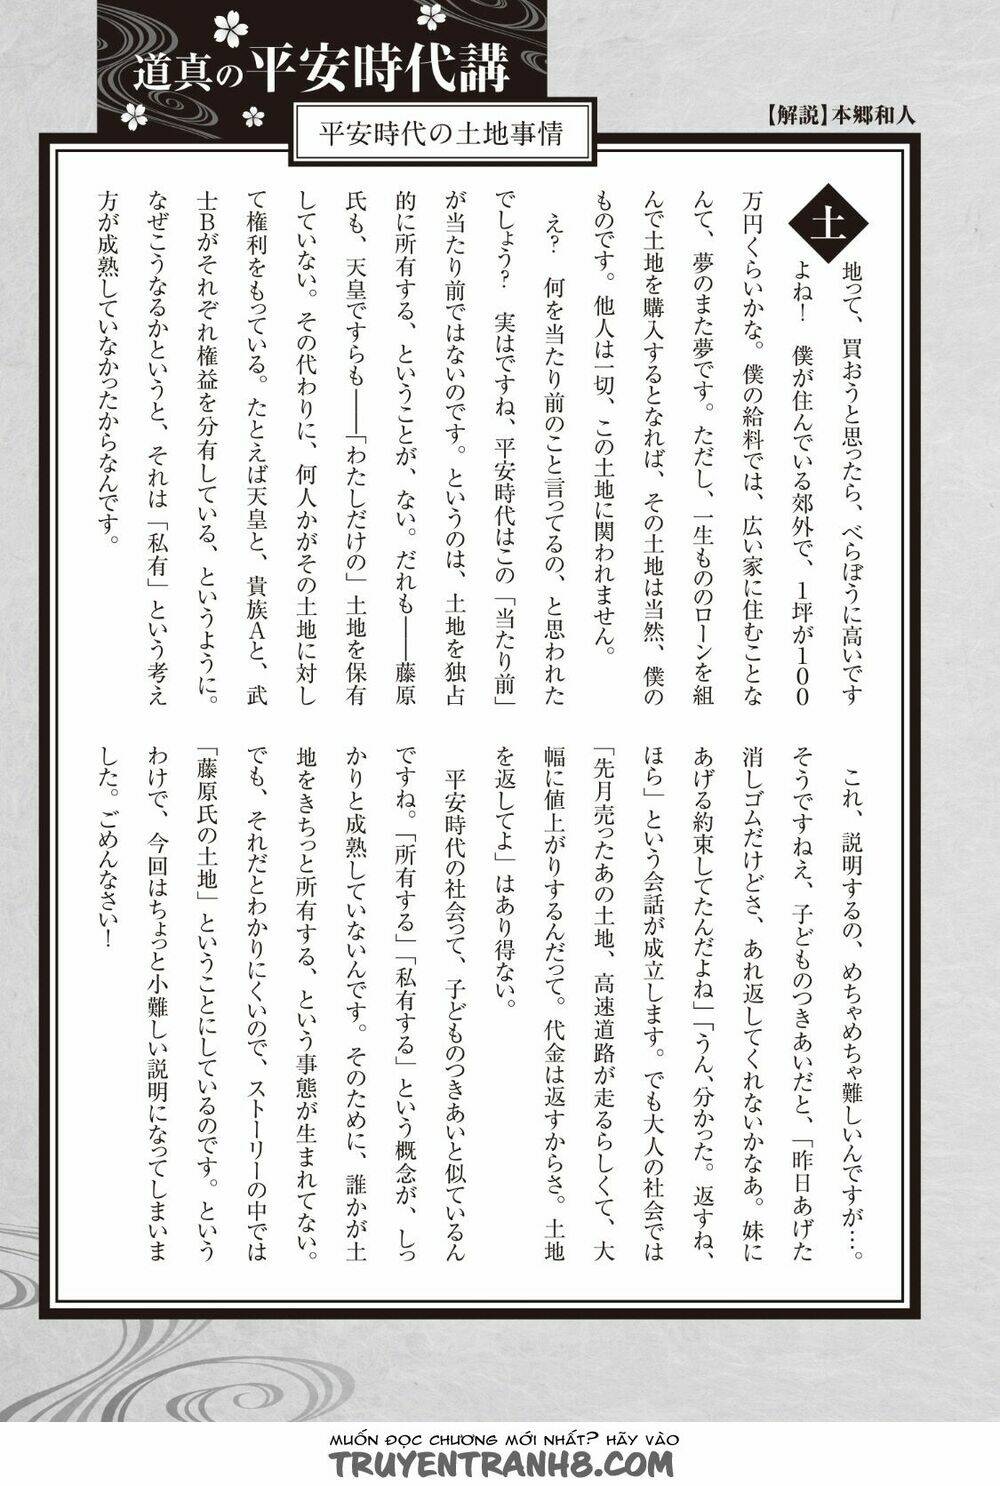 道真の平安時代講
平安時代の土地事情
【解説】本郷和人
土地って、買おうと思ったら、べらぼうに高いです
よね！　僕が住んでいる郊外で、1坪が100
万円くらいかな。僕の給料では、広い家に住むことな
んて、夢のまた夢です。ただし、一生もののローンを組
んで土地を購入するとなれば、その土地は当然、僕の
ものです。他人は一切、この土地に関われません。
え？　何を当たり前のこと言ってるの、と思われた
でしょう？　実はですね、平安時代はこの「当たり前」
が当たり前ではないのです。というのは、土地を独占
的に所有する、ということが、ない。だれも――藤原
氏も、天皇ですらも――「わたしだけの」土地を保有
していない。その代わりに、何人かがその土地に対し
て権利をもっている。たとえば天皇と、貴族Aと、武
士Bがそれぞれ権益を分有している、というように。
なぜこうなるかというと、それは「私有」という考え
方が成熟していなかったからなんです。
これ、説明するの、めちゃめちゃ難しいんですが…。
そうですねえ、子どものつきあいだと、「昨日あげた
消しゴムだけどさ、あれ返してくれないかなあ。妹に
あげる約束してたんだよね」「うん、分かった。返すね、
ほら」という会話が成立します。でも大人の社会では
「先月売ったあの土地、高速道路が走るらしくて、大
幅に値上がりするんだって。代金は返すからさ。土地
を返してよ」はあり得ない。
平安時代の社会って、子どものつきあいと似ているん
ですね。「所有する」「私有する」という概念が、しっ
かりと成熟していないんです。そのために、誰かが土
地をきちっと所有する、という事態が生まれてない。
でも、それだとわかりにくいので、ストーリーの中では
「藤原氏の土地」ということにしているのです。という
わけで、今回はちょっと小難しい説明になってしまいま
した。ごめんなさい！
MUỐN ĐỌC CHƯƠNG MỚI NHẤT? HÃY VÀO
TRUYENTRANH8.COM